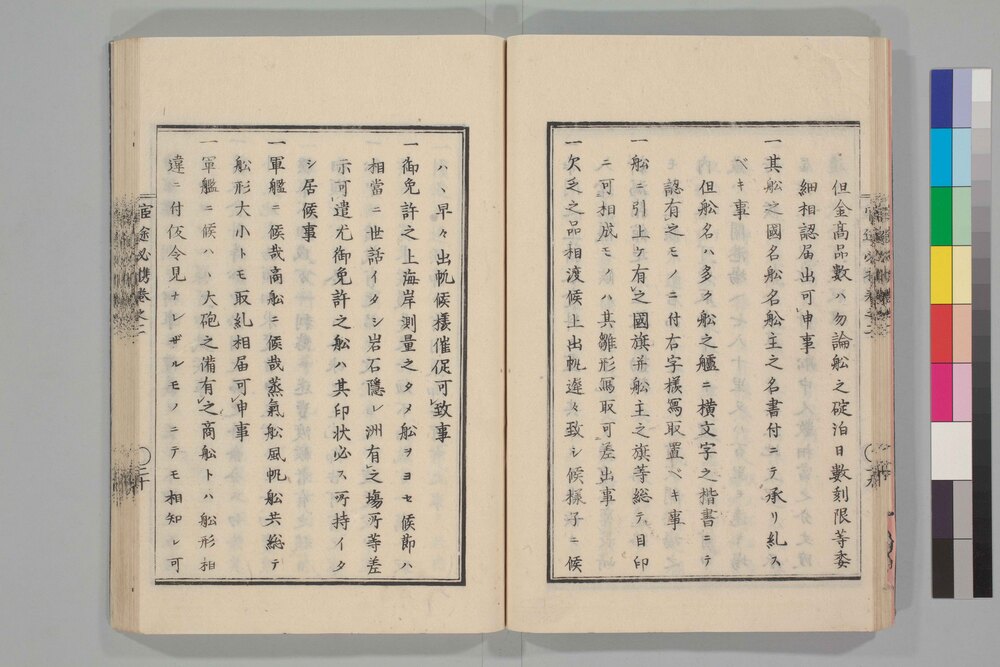 但金高品數ハ勿論舩之碇泊日數刻限等委
細相認届出可申事
一其舩之國名舩名舩主之名書付ニテ承リ糺ス
ベキ事
但舩名ハ多ク舩之艫ニ横文字之楷書ニテ
認有之モノニ付右字樣寫取置ベキ事
一舩ニ引上ケ有之國旗并舩主之旗等総テ目印
ニ可相成モノハ其雛形寫取可差出事
一欠乏之品相渡候上出帆遲々致シ候樣子ニ候
ハヽ早々出帆候樣催促可致事
一御免許之上海岸測量之タメ舩ヲヨセ候節ハ
相當ニ世話イタシ岩石隱レ洲有之塲所等差
示可遣尤御免許之舩ハ其印状必ス所持イタ
シ居候事
一軍艦ニ候哉商舩ニ候哉蒸氣舩風帆舩共総テ
舩形大小トモ取糺相届可申事
一軍艦ニ候ハヽ大砲之備有之商舩トハ舩形相
違ニ付仮令見ナレザルモノニテモ相知レ可
宦途必携卷之二
三十